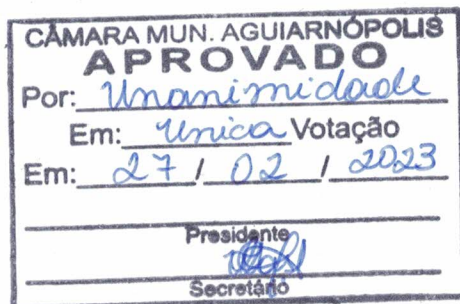 CÂMARA MUN. AGUIARNÓPOLIS
APROVADO
Por: Unanimidade
Em: Unica Votação
Em: 27 / 02 / 2023
Presidente
Secretário